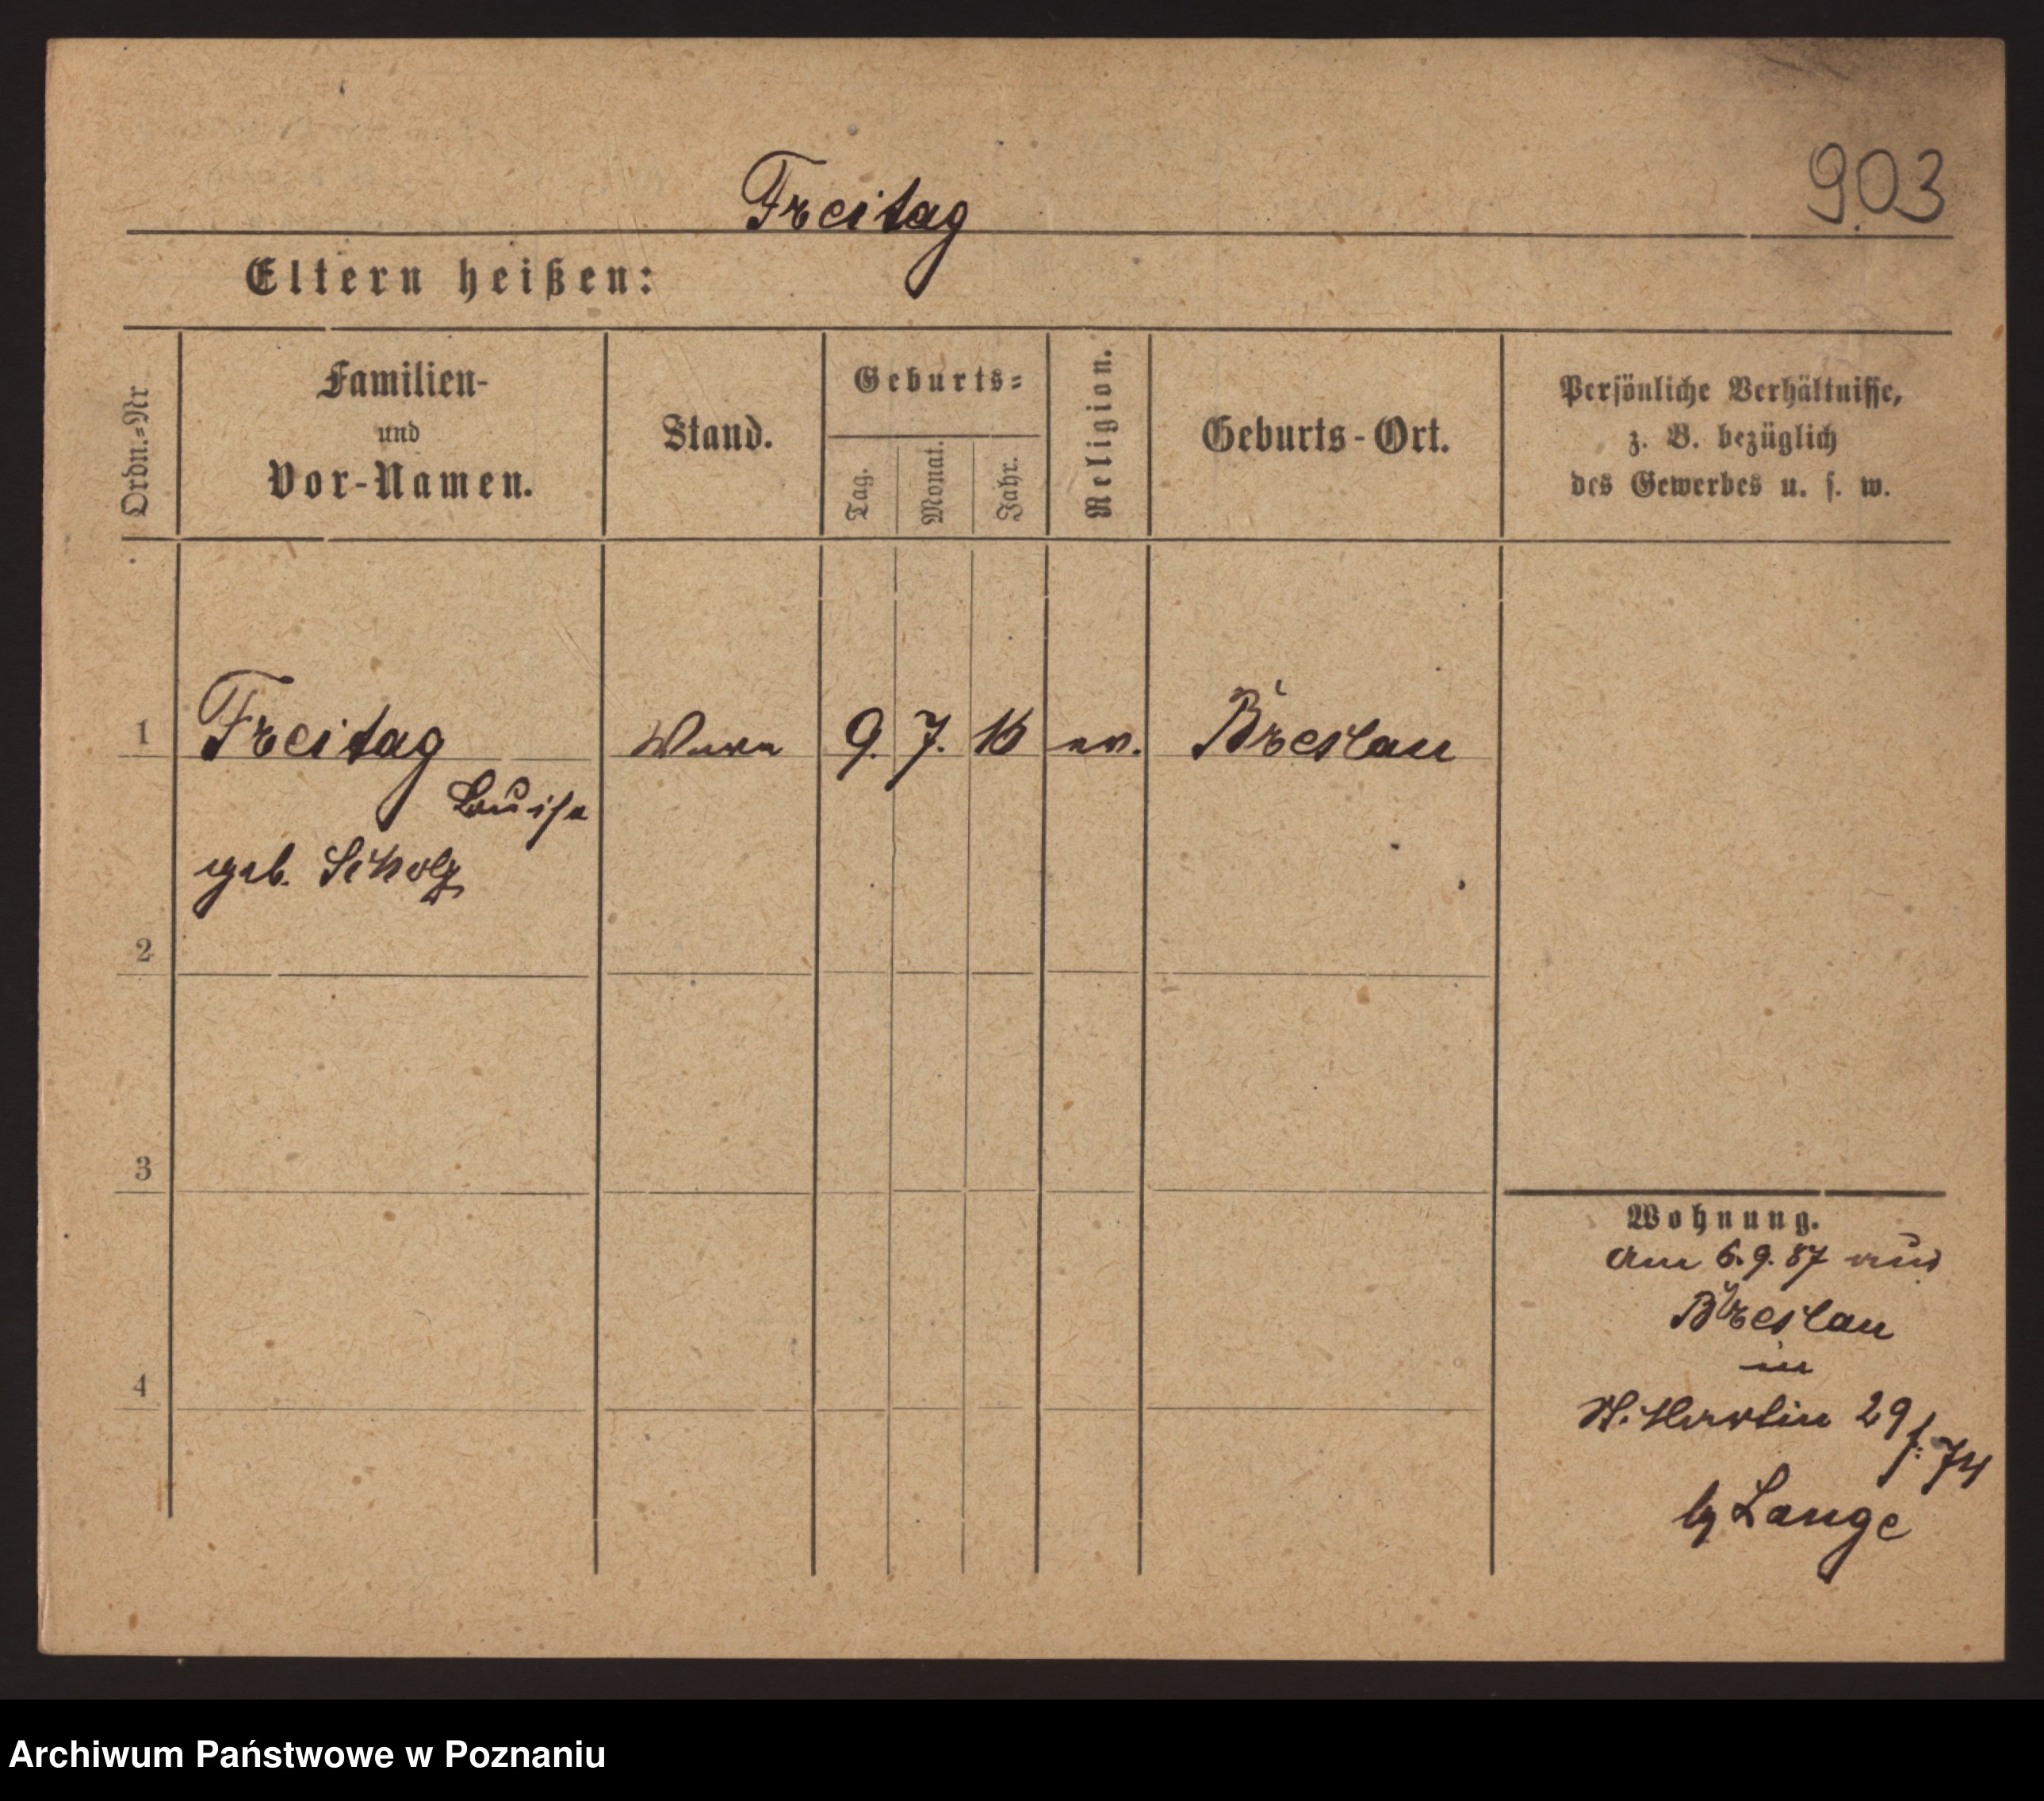 903
Freitag
Eltern heißen:
Ordn.=Nr
Familien-
und
Vor-Namen.
Stand.
Geburts=
Tag.
Monat.
Jahr.
Religion.
Geburts-Ort.
Persönliche Verhältnisse,
z. B. bezüglich
des Gewerbes u. s. w.
1 Freitag 9. 7. 16 ev. Breslau
Louise
geb. Scholz
2
3
4
Wohnung.
Am 6.9.87 aus
Breslau
in
St. Martin 29
f. 74
b/ Lange
Archiwum Państwowe w Poznaniu